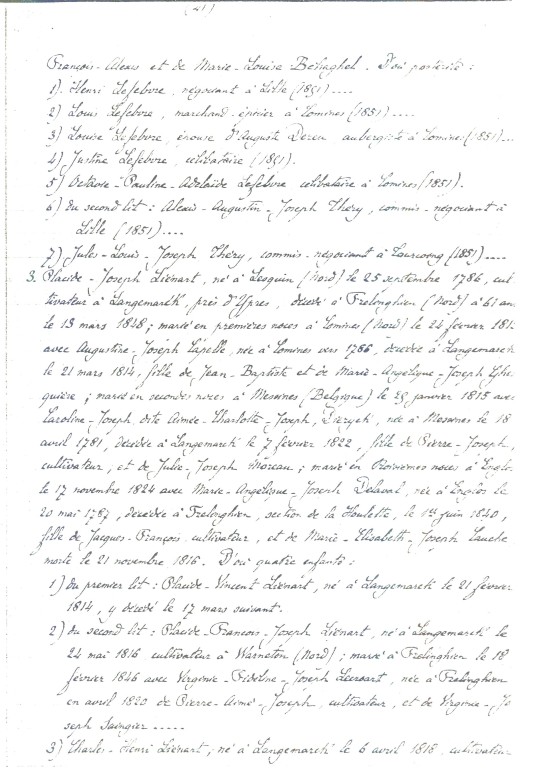 (41)
François-Alexis et de Marie-Louise Béhaghel. D'où postérité :
1) Henri Lefebvre, négociant à Lille (1851) ....
2) Louis Lefebvre, marchand-épicier à Comines (1851) ....
3) Louise Lefebvre, épouse d'Auguste Dereu aubergiste à Comines (1851)...
4) Justine Lefebvre, célibataire (1851).
5) Octavie-Pauline-Adélaïde Lefebvre célibataire à Comines (1851).
6) du second lit : Alexis-Augustin-Joseph Théry, commis-négociant à
Lille (1851) ....
7) Jules-Louis-Joseph Théry, commis-négociant à Tourcoing (1851) ....
3. Placide-Joseph Liénart, né à Lesquin (Nord) le 25 septembre 1786, cul
tivateur à Langemarck, près d'Ypres, décédé à Frelinghien (Nord) à 61 an
le 13 mars 1848 ; marié en premières noces à Comines (Nord) le 24 février 181
avec Augustine-Joseph Capelle, née à Comines vers 1786, décédée à Langemarck
le 21 mars 1814, fille de Jean-Baptiste et de Marie-Angélique-Joseph Ghe
quière ; marié en secondes noces à Messines (Belgique) le 25 janvier 1815 avec
Caroline-Joseph, dite Aimée-Charlotte-Joseph, née à Messines le 18
avril 1781, décédée à Langemarck le 7 février 1822, fille de Pierre-Joseph,
cultivateur, et de Julie-Joseph Moreau ; marié en troisièmes noces à Englos
le 17 novembre 1824 avec Marie-Angélique-Joseph Delaval, née à Englos le
20 mai 1787, décédée à Frelinghien, section de la Houlette, le 1er juin 1840,
fille de Jacques-François, cultivateur, et de Marie-Elisabeth-Joseph Lauche
morte le 21 novembre 1816. D'où quatre enfants :
1) du premier lit : Placide-Vincent Liénart, né à Langemarck le 21 février
1814, y décédé le 17 mars suivant.
2) du second lit : Placide-François-Joseph Liénart, né à Langemarck le
24 mai 1816 cultivateur à Warneton (Nord) ; marié à Frelinghien le 18
février 1846 avec Virginie-Fidéline-Joseph Lecroart, née à Frelinghien
en avril 1820 de Pierre-Aimé-Joseph, cultivateur, et de Virginie-Jo
seph Saingier .....
3) Charles-Henri Liénart, né à Langemarck le 6 avril 1818, cultivateur